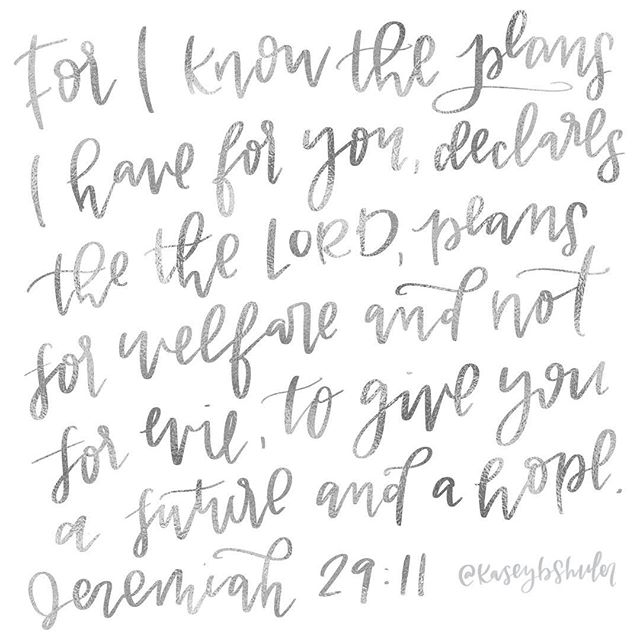 For I know the plans
I have for you, declares
the the LORD, plans
for welfare and not
for evil, to give you
a future and a hope.
Jeremiah 29:11
@kaseybshuler